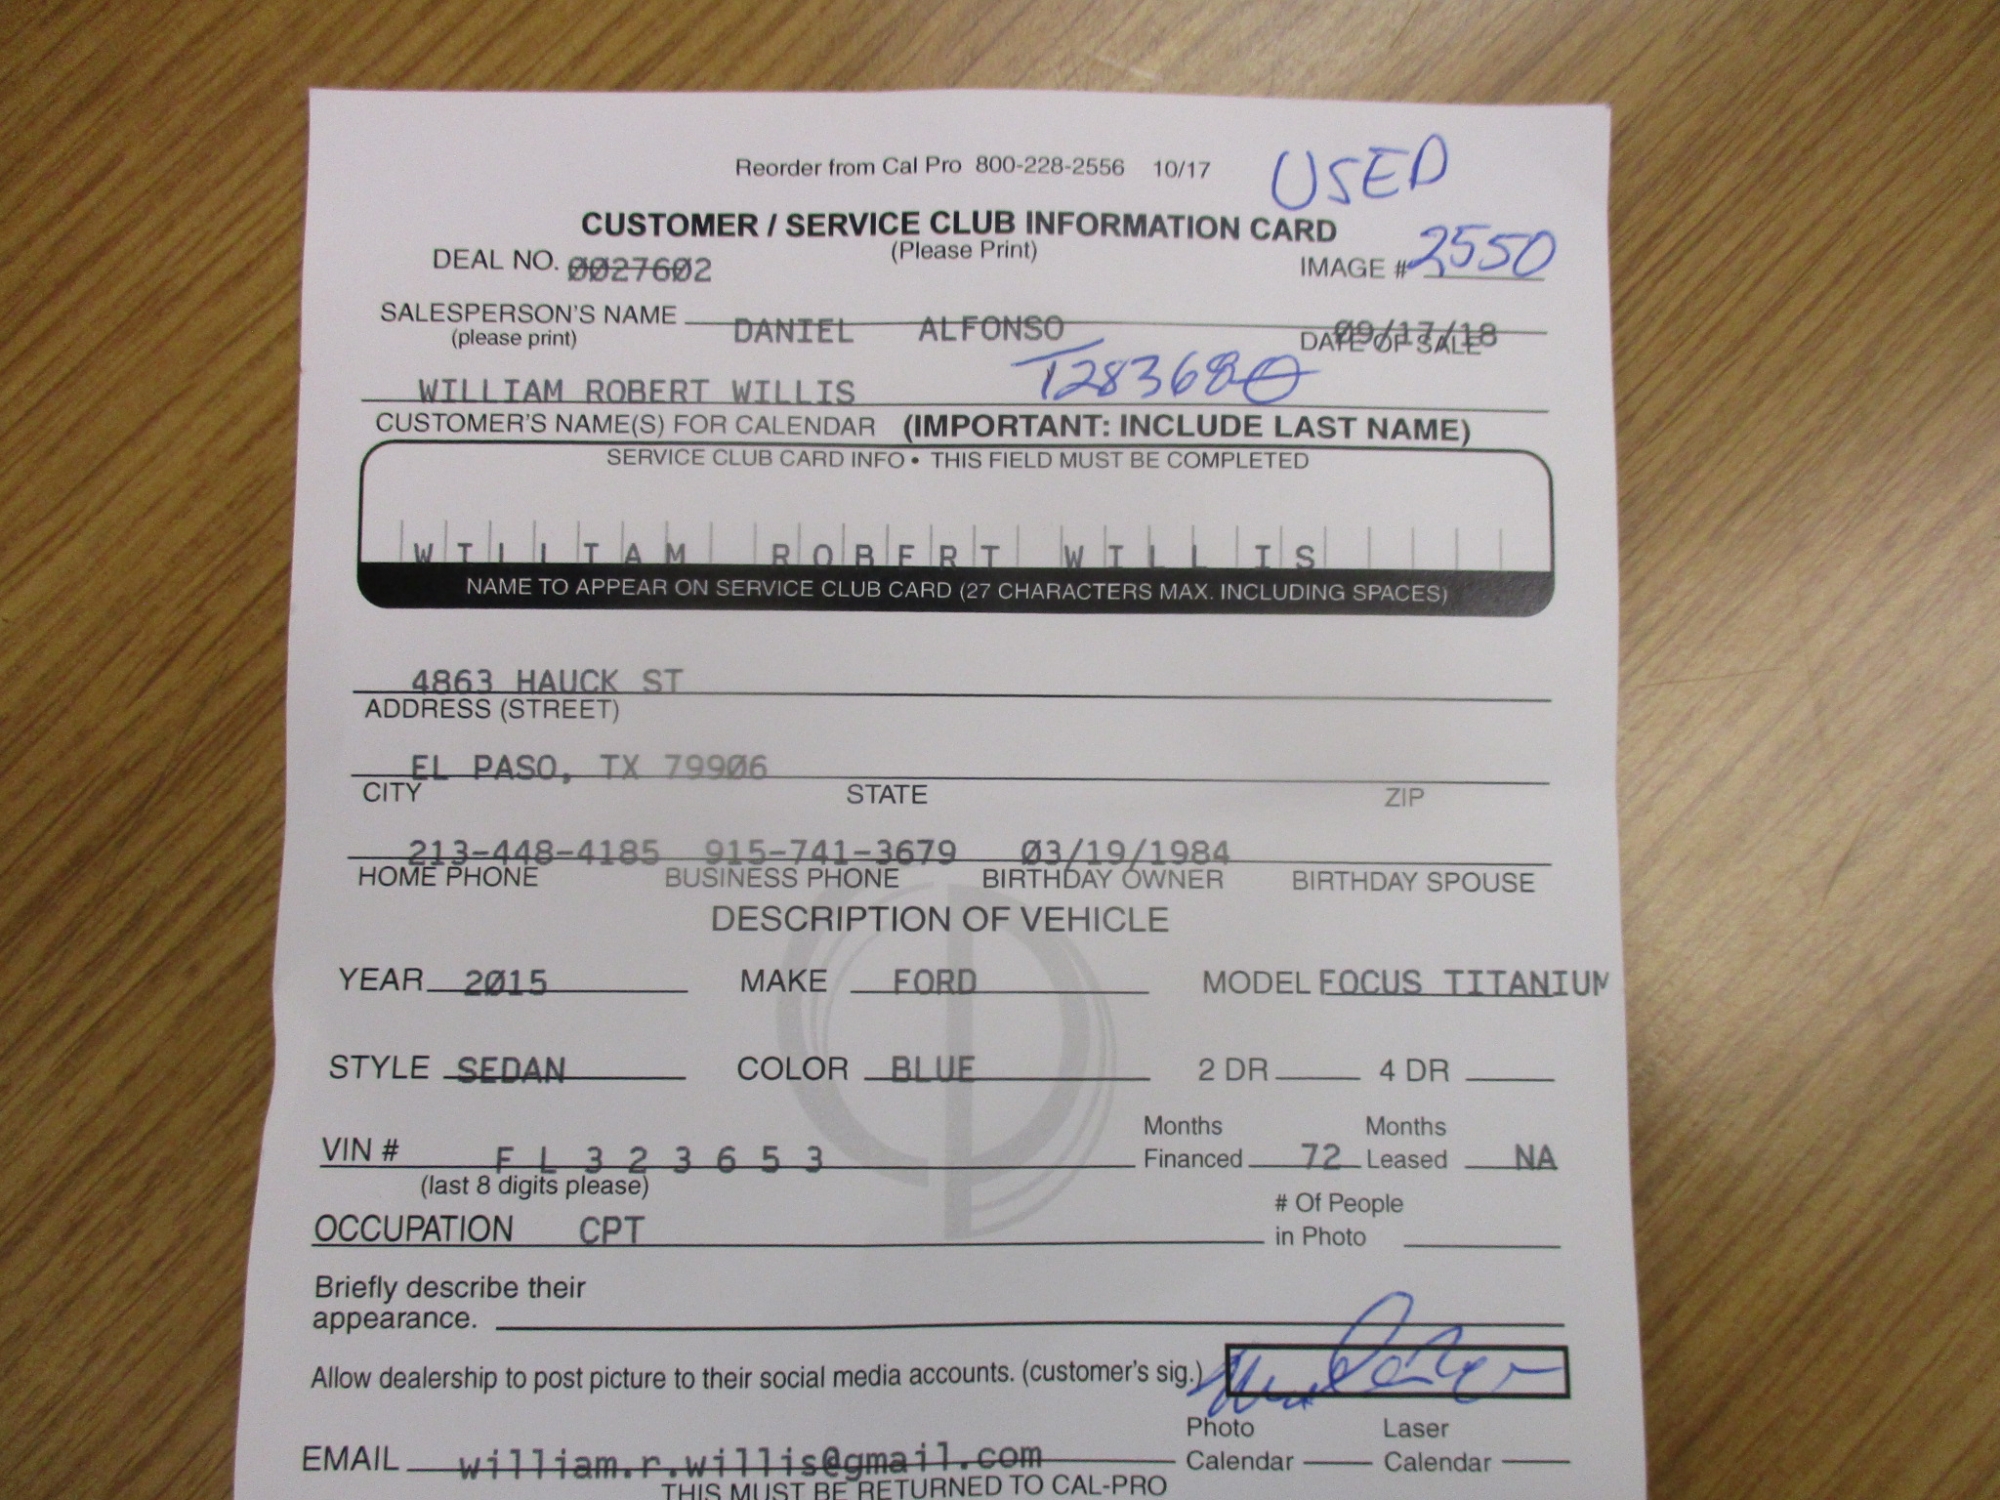 Reorder from Cal Pro 800-228-2556 10/17 USED
CUSTOMER / SERVICE CLUB INFORMATION CARD
(Please Print)
DEAL NO. 0027602 IMAGE # 2550
SALESPERSON'S NAME DANIEL ALFONSO 09/17/18
(please print) DATE OF SALE
WILLIAM ROBERT WILLIS T283680
CUSTOMER'S NAME(S) FOR CALENDAR (IMPORTANT: INCLUDE LAST NAME)
SERVICE CLUB CARD INFO • THIS FIELD MUST BE COMPLETED
WILLIAM ROBERT WILLIS
NAME TO APPEAR ON SERVICE CLUB CARD (27 CHARACTERS MAX. INCLUDING SPACES)
4863 HAUCK ST
ADDRESS (STREET)
EL PASO, TX 79906
CITY STATE ZIP
213-448-4185 915-741-3679 03/19/1984
HOME PHONE BUSINESS PHONE BIRTHDAY OWNER BIRTHDAY SPOUSE
DESCRIPTION OF VEHICLE
YEAR 2015 MAKE FORD MODEL FOCUS TITANIUM
STYLE SEDAN COLOR BLUE 2 DR 4 DR
Months Months
VIN # F L 3 2 3 6 5 3 Financed 72 Leased NA
(last 8 digits please)
# Of People
OCCUPATION CPT in Photo
Briefly describe their
appearance.
Allow dealership to post picture to their social media accounts. (customer's sig.)
Photo Laser
EMAIL william.r.willis@gmail.com Calendar Calendar
THIS MUST BE RETURNED TO CAL-PRO